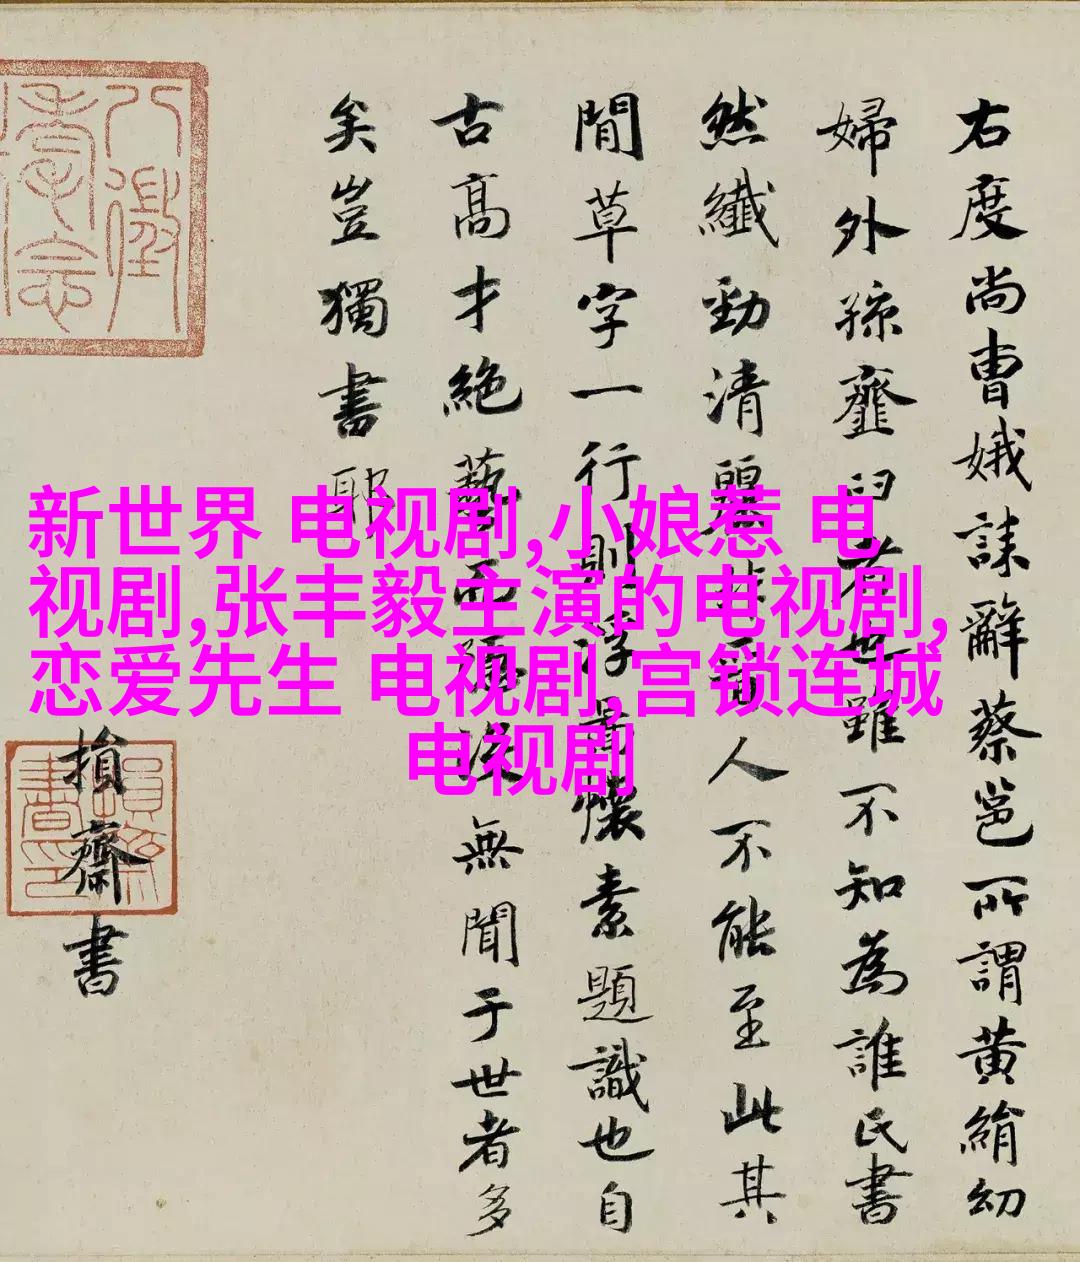 右度尚曹娥誄辭蔡邕所謂黄絹幼
婦外孫虀臼者世雖不知為誰氏書
然纖勁清麗非晉人不能至此其
間草字一行則浮圖懷素題識也自
古高才絶藝而隱没無聞于世者多
矣豈獨書耶
損齋書
新世界 电视剧,小娘惹 电
视剧,张丰毅主演的电视剧,
恋爱先生 电视剧,宫锁连城
电视剧